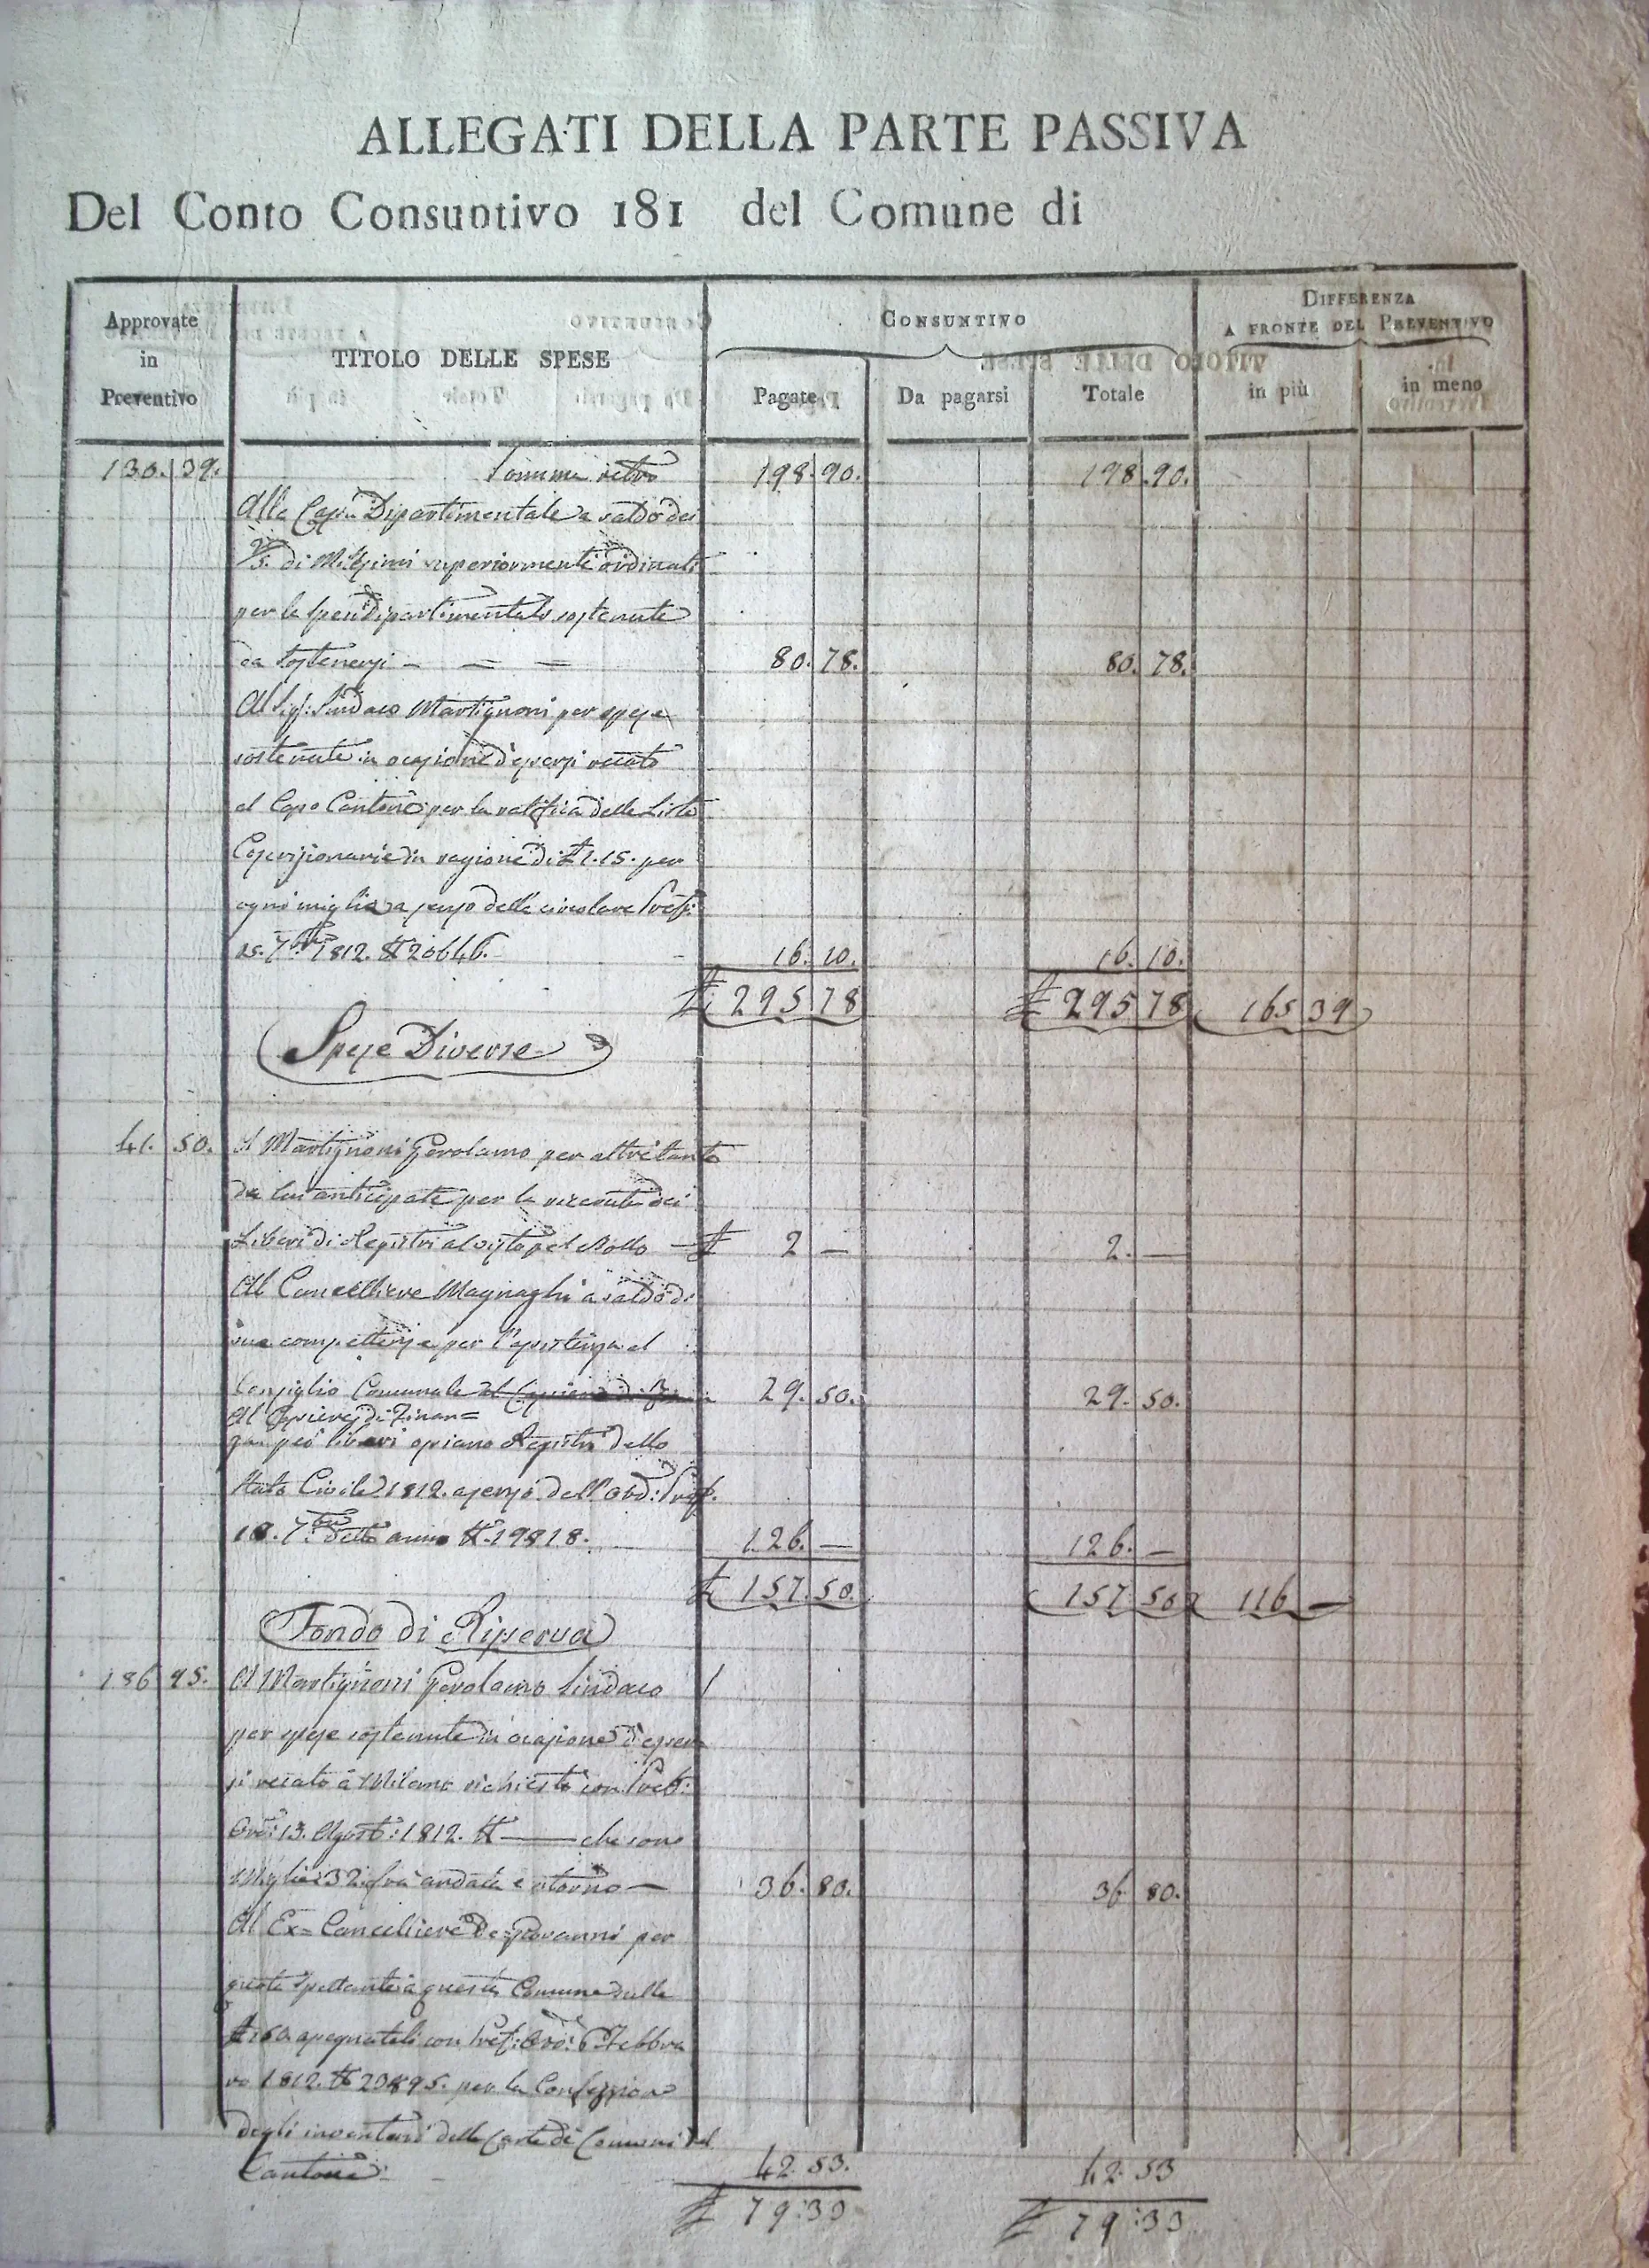 ALLEGATI DELLA PARTE PASSIVA
Del Conto Consuntivo 181 del Comune di
Approvate in Preventivo
TITOLO DELLE SPESE
CONSUNTIVO
Pagate
Da pagarsi
Totale
DIFFERENZA
A FRONTE DEL PREVENTIVO
in più
in meno
130. 39. Somma retro 198. 90. 198. 90.
Alla Cassa Dipartimentale a saldo dei
2/3. di Millesimi superiormente ordinati
per le spese dipartimentali sostenute
da sostenersi — — — 80. 78. 80. 78.
Al Sig.r Sindaco Martignoni per spese
sostenute in ocasione d'essersi recato
al Capo Cantone per la rattifica delle Liste
Coscrizionarie in ragione di £ 1. 15. per
ogni miglia a senso della circolare Pref.
25. 7bre 1812. N 20646. 16. 10. 16. 10.
£ 295 78 £ 295 78 165 39
Spese Diverse
41. 50. A Martignoni Gerolamo per altretante
da lui anticipate per la dei
Liberi di Registri al visto pel Bollo — £ 2 — 2. —
Al Cancelliere Magnaghi a saldo di
sue competenze per l'assistenza al
Consiglio Comunale 29. 50. 29. 50.
Al di Finan=
za pei libri ossiano Registri dello
Stato Civile 1812. a senso dell'Ord: Pref.
18. 7bre detto anno N. 19818. 126. — 126. —
£ 157. 50. 157 50 116 —
Fondo di Riserva
186 95. A Martignoni Gerolamo Sindaco
per spese sostenute in ocasione d'esser
si recato a Milano richiesto con Pref:
Ord: 13. Agost: 1812. N — che sono
Miglia 32. fra andata e ritorno — 36. 80. 36 80.
Al Ex= Cancelliere De=Giovanni per
quota spettante a questa Comune sulle
£ 160. assegnateli con Pref: Ord: 6 Febbra
ro 1812. N 20895. per la Confezione
degli inventari delle Carte di Comuni del
Cantone. 42. 53. 42. 53
£ 79: 33 £ 79: 33